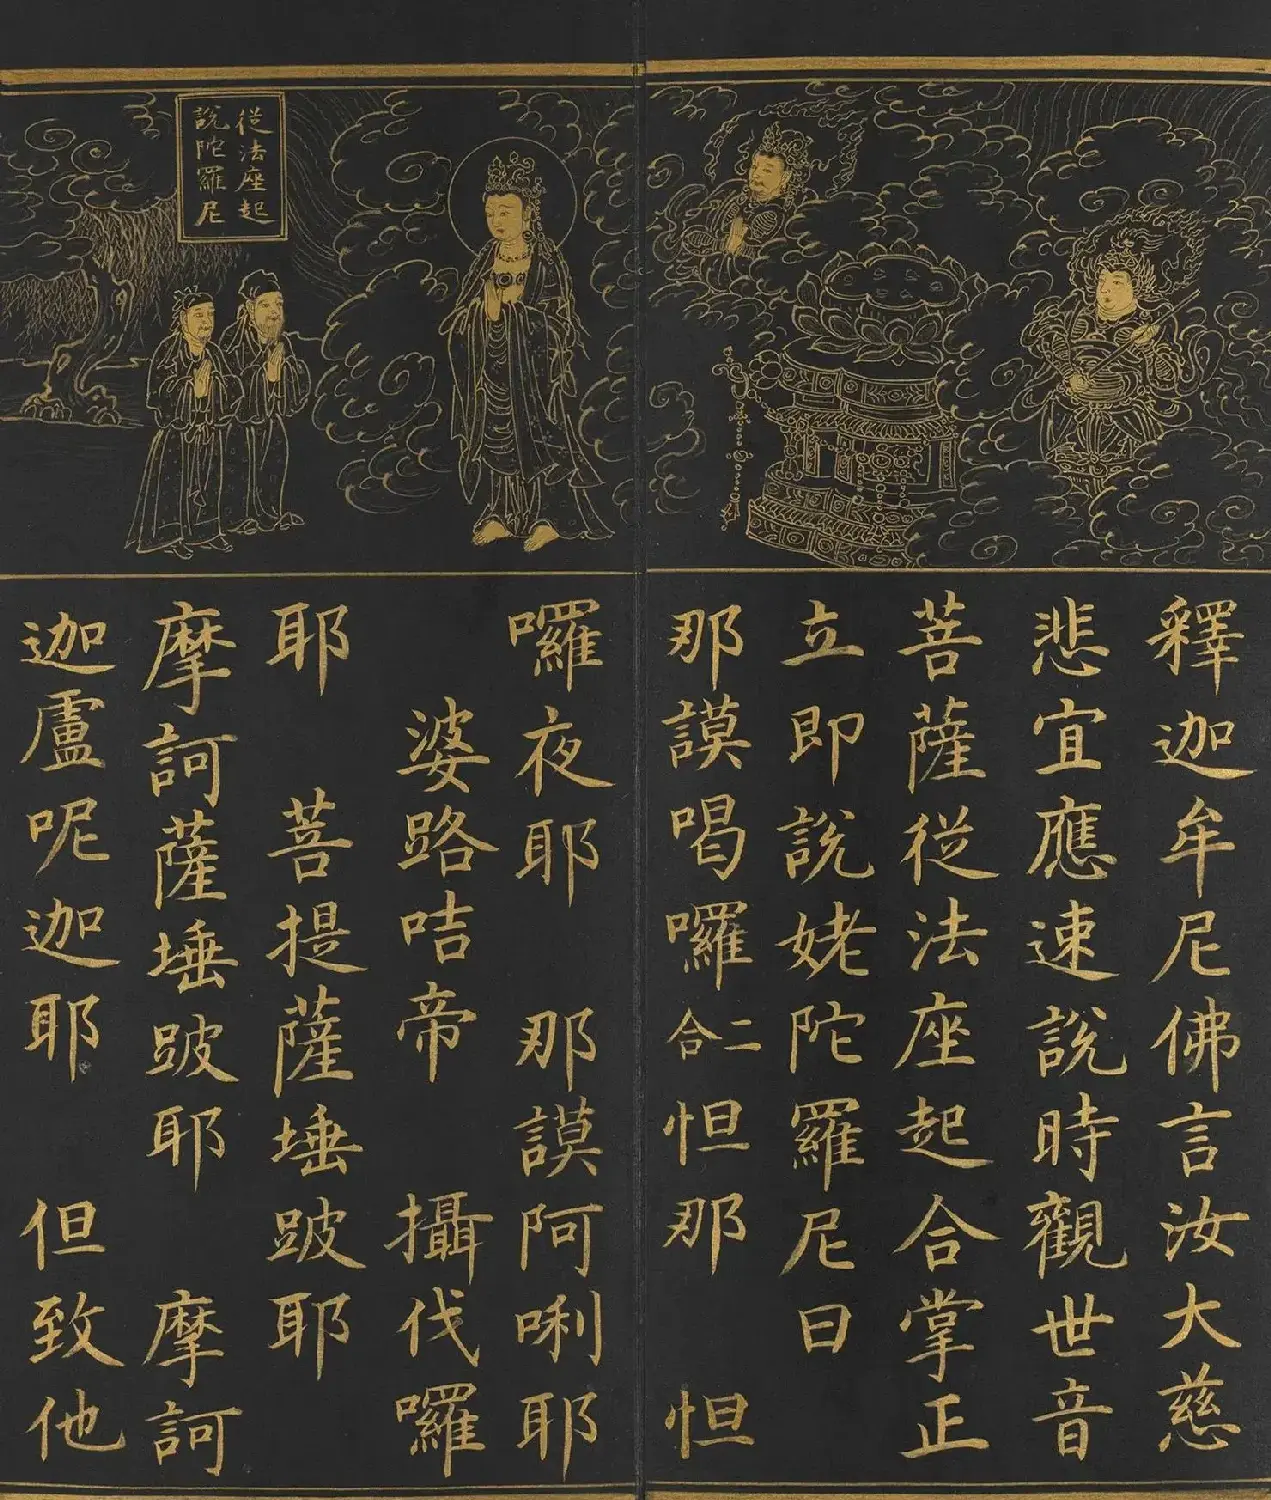 從法座起
說陀羅尼
釋迦牟尼佛言汝大慈
悲宜應速說時觀世音
菩薩從法座起合掌正
立即說姥陀羅尼曰
那謨喝囉二合怛那 怛
囉夜耶 那謨阿唎耶
婆路咭帝 攝伐囉
耶 菩提薩埵跛耶
摩訶薩埵跛耶 摩訶
迦盧呢迦耶 但致他